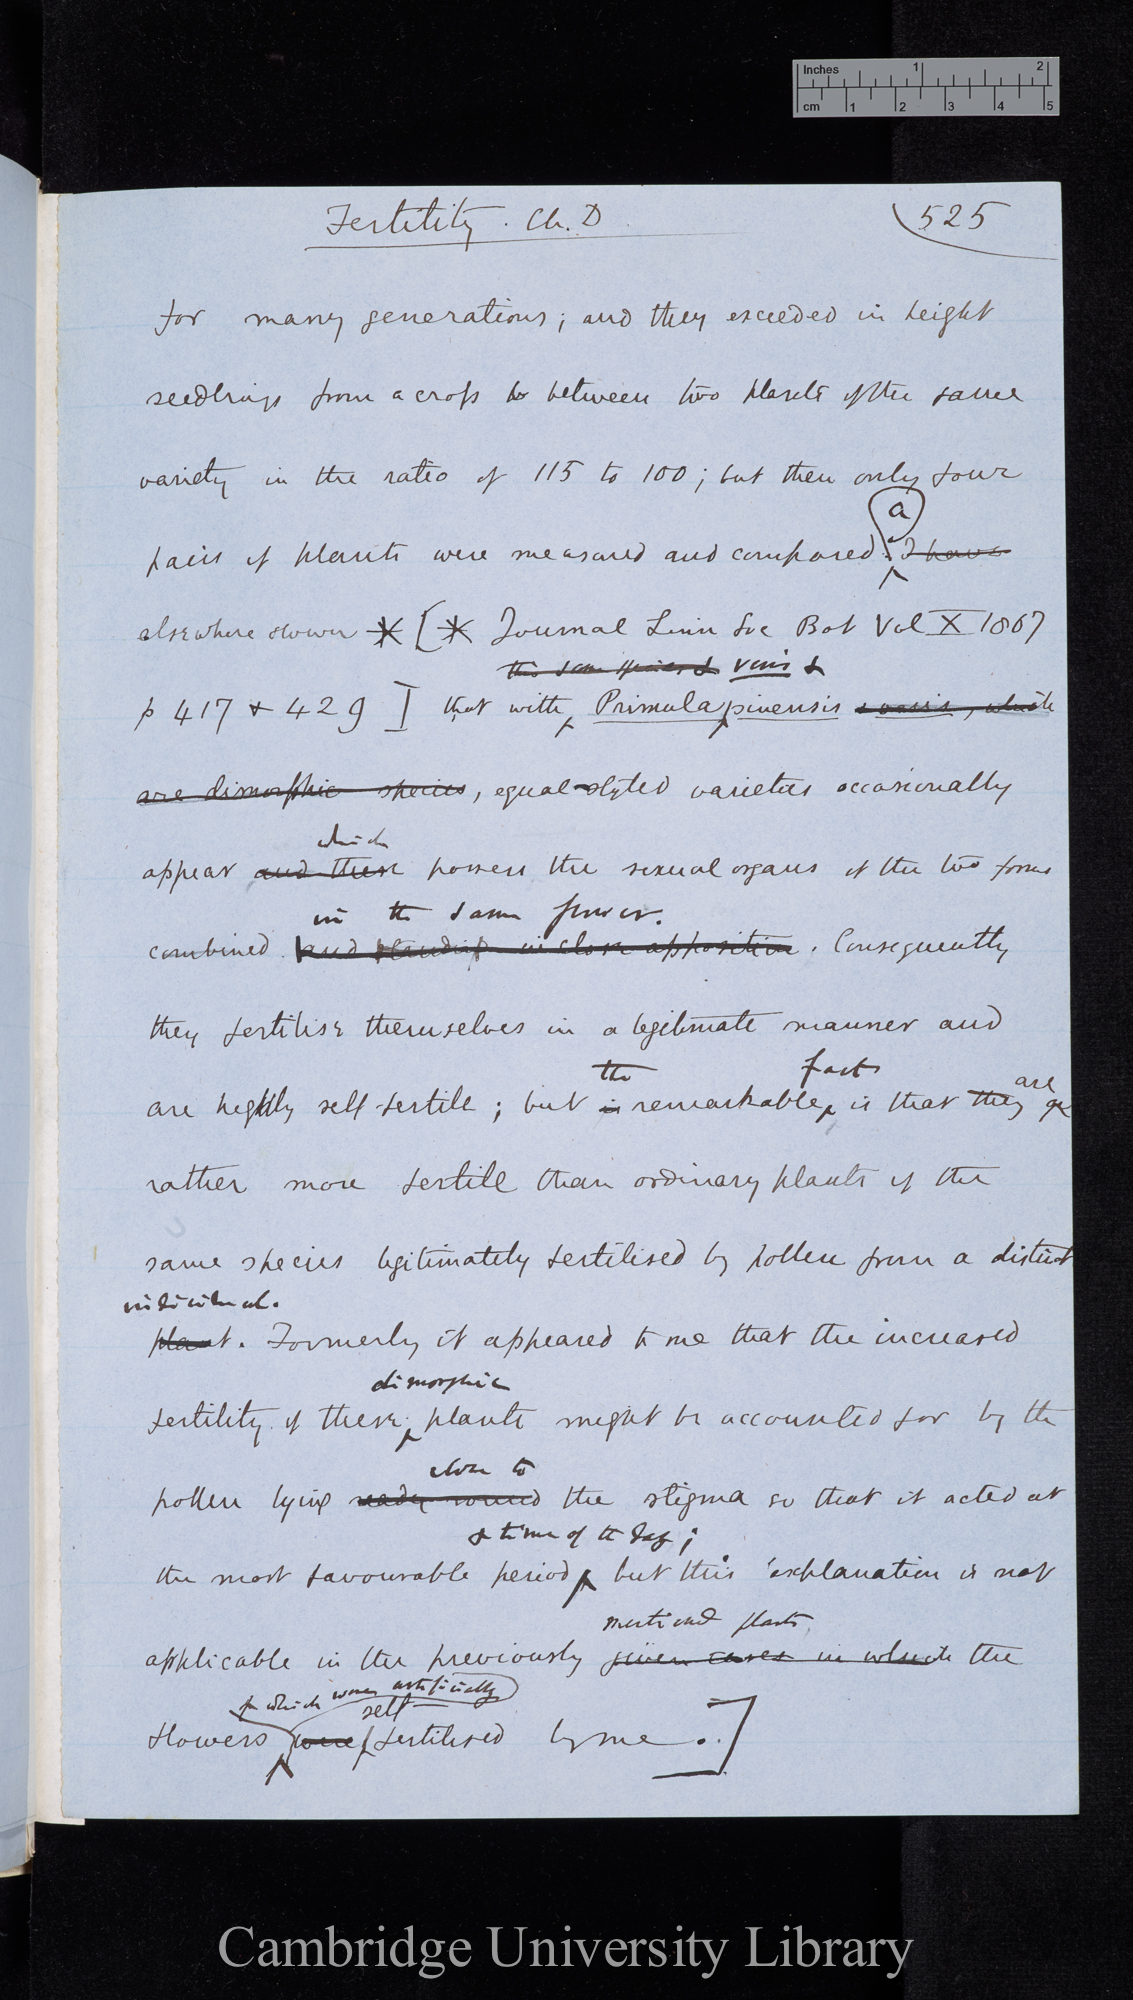 Inches 1 2
cm 1 2 3 4 5
Fertility. Ch. D
525
for many generations; and they exceeded in height
seedlings from a cross b between two plants of the same
variety in the ratio of 115 to 100; but then only four
a
pairs of plants were measured and compared. I have
elsewhere shown * [* Journal Linn Soc Bot Vol X 1867
the same species & veris &
p 417 & 429] that with Primula sinensis & veris, which
are dimorphic species, equal-styled varieties occasionally
which
appear and these possess the sexual organs of the two forms
in the same flower.
combined and standing in close apposition. Consequently
they fertilise themselves in a legitimate manner and
the fact are
are highly self-fertile; but is remarkable is that they are
rather more fertile than ordinary plants of the
same species legitimately fertilised by pollen from a distinct
individual.
plant. Formerly it appeared to me that the increased
dimorphic
fertility of these plants might be accounted for by the
close to
pollen lying ready round the stigma so that it acted at
& time of the day;
the most favourable period, but this explanation is not
mentioned plants
applicable in the previously given cases in which the
in which were artificially
self-
flowers were fertilised by me.]
Cambridge University Library